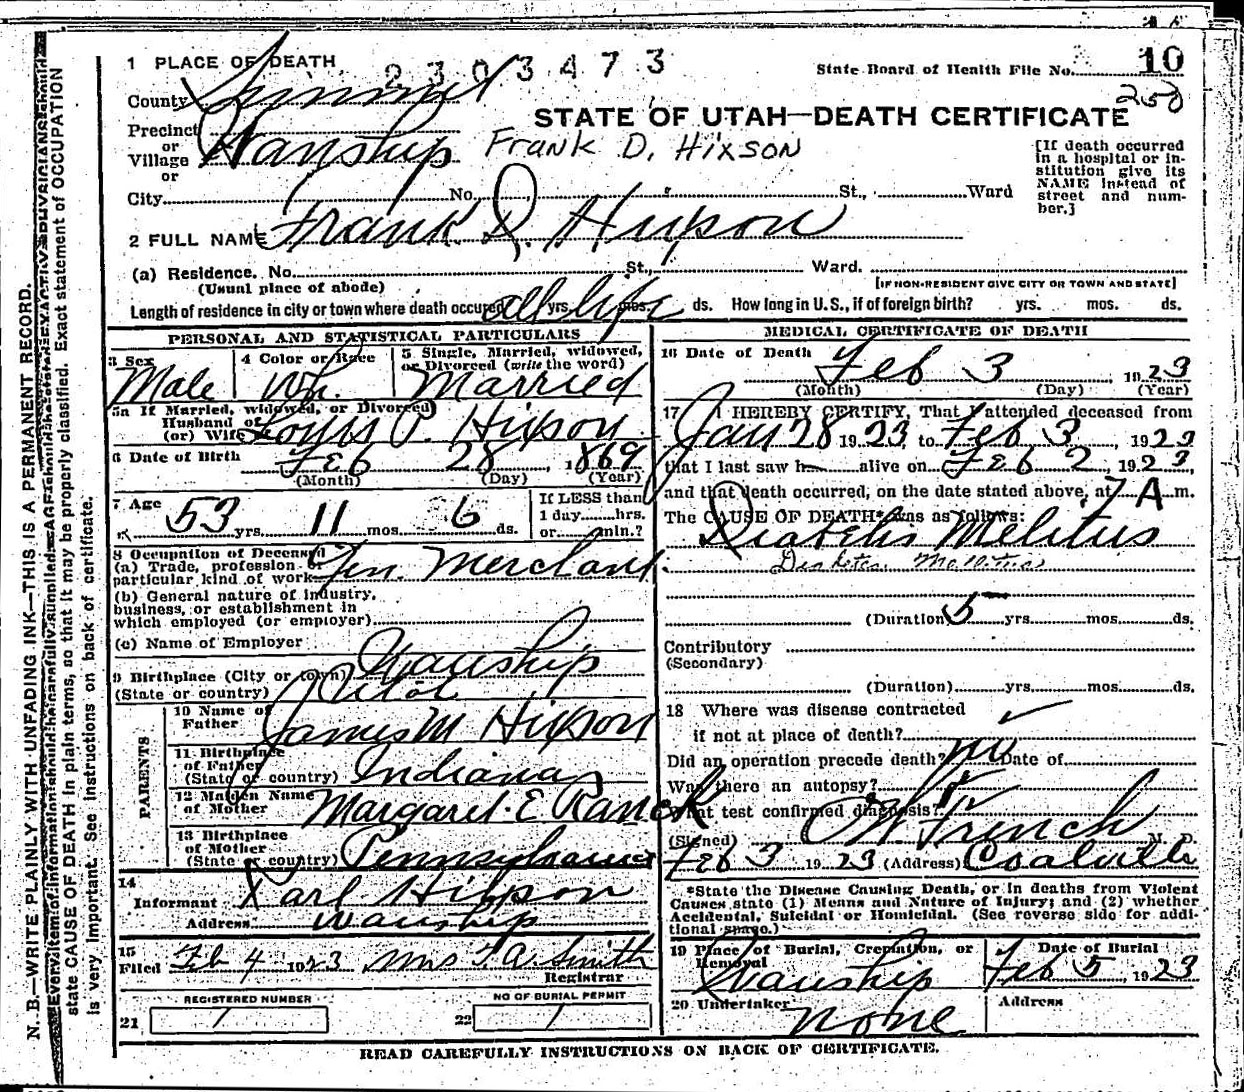 1 PLACE OF DEATH 2303473 State Board of Health File No. 10
County Summit 258
STATE OF UTAH—DEATH CERTIFICATE
Precinct
or
Village Wanship Frank D. Hixson
or
[If death occurred
in a hospital or in-
stitution give its
NAME instead of
street and num-
ber.]
City No. St., Ward
2 FULL NAME Frank D. Hixson
(a) Residence. No. St., Ward.
(Usual place of abode) [IF NON-RESIDENT GIVE CITY OR TOWN AND STATE]
Length of residence in city or town where death occured all life yrs. mos. ds. How long in U. S., if of foreign birth? yrs. mos. ds.
PERSONAL AND STATISTICAL PARTICULARS
3 Sex 4 Color or Race 5 Single, Married, widowed,
or Divorced (write the word)
Male Wh. Married
5a If Married, widowed, or Divorced
Husband of
(or) Wife P. Hixson
6 Date of Birth Feb 28, 1869
(Month) (Day) (Year)
7 Age If LESS than
53 yrs. 11 mos. 6 ds. 1 day hrs.
or min.?
8 Occupation of Deceased
(a) Trade, profession or
particular kind of work Gen. Merchant.
(b) General nature of industry,
business, or establishment in
which employed (or employer)
(c) Name of Employer
9 Birthplace (City or town) Wanship
(State or country) Utah
PARENTS
10 Name of
Father James M Hixson
11 Birthplace
of Father
(State or country) Indiana
12 Maiden Name
of Mother Margaret E Ranck
13 Birthplace
of Mother
(State or country) Pennsylvania
14
Informant Karl Hixson
Address Wanship
15
Filed Feb 4 1923 Mrs T. A. Smith
Registrar
REGISTERED NUMBER NO OF BURIAL PERMIT
21 1 22 1
MEDICAL CERTIFICATE OF DEATH
16 Date of Death Feb 3, 1923
(Month) (Day) (Year)
17 I HEREBY CERTIFY, That I attended deceased from
Jan 28 1923 to Feb 3, 1923
that I last saw h alive on Feb 2, 1923,
and that death occurred, on the date stated above, at 7 A m.
The CAUSE OF DEATH* was as follows:
Diabetis Melitus
Diabetes Mellitus
(Duration) 5 yrs. mos. ds.
Contributory
(Secondary)
(Duration) yrs. mos. ds.
18 Where was disease contracted
if not at place of death?
Did an operation precede death? no Date of
Was there an autopsy?
What test confirmed diagnosis?
(Signed) French M. D.
Feb 3 1923 (Address) Coalville
*State the Disease Causing Death, or in deaths from Violent
Causes state (1) Means and Nature of Injury; and (2) whether
Accidental, Suicidal or Homicidal. (See reverse side for addi-
tional space.)
19 Place of Burial, Cremation, or
Removal Date of Burial
Wanship Feb 5, 1923
20 Undertaker Address
none
READ CAREFULLY INSTRUCTIONS ON BACK OF CERTIFICATE.
N. B.—WRITE PLAINLY WITH UNFADING INK—THIS IS A PERMANENT RECORD.
state CAUSE OF DEATH in plain terms, so that it may be properly classified. Exact statement of OCCUPATION
is very important. See instructions on back of certificate.